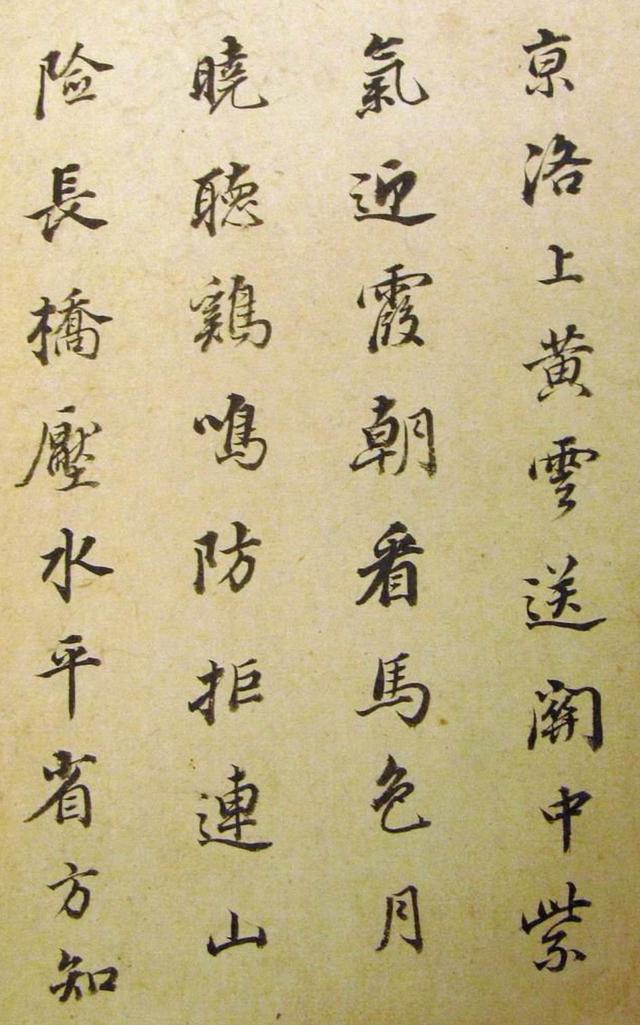 京洛上黃雲送關中紫
氣迎霞朝看馬色月
曉聽鷄鳴防拒連山
險長橋壓水平省方知